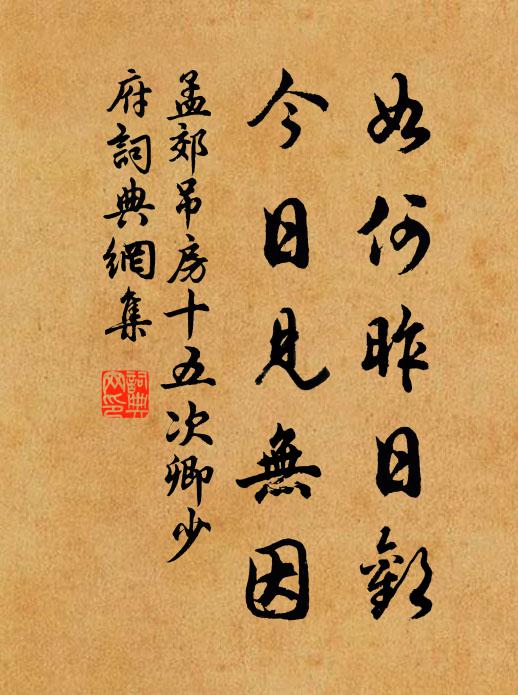 如何昨日歡
今日見無因
孟郊吊房十五次卿少
府詞典網集
詞典網印